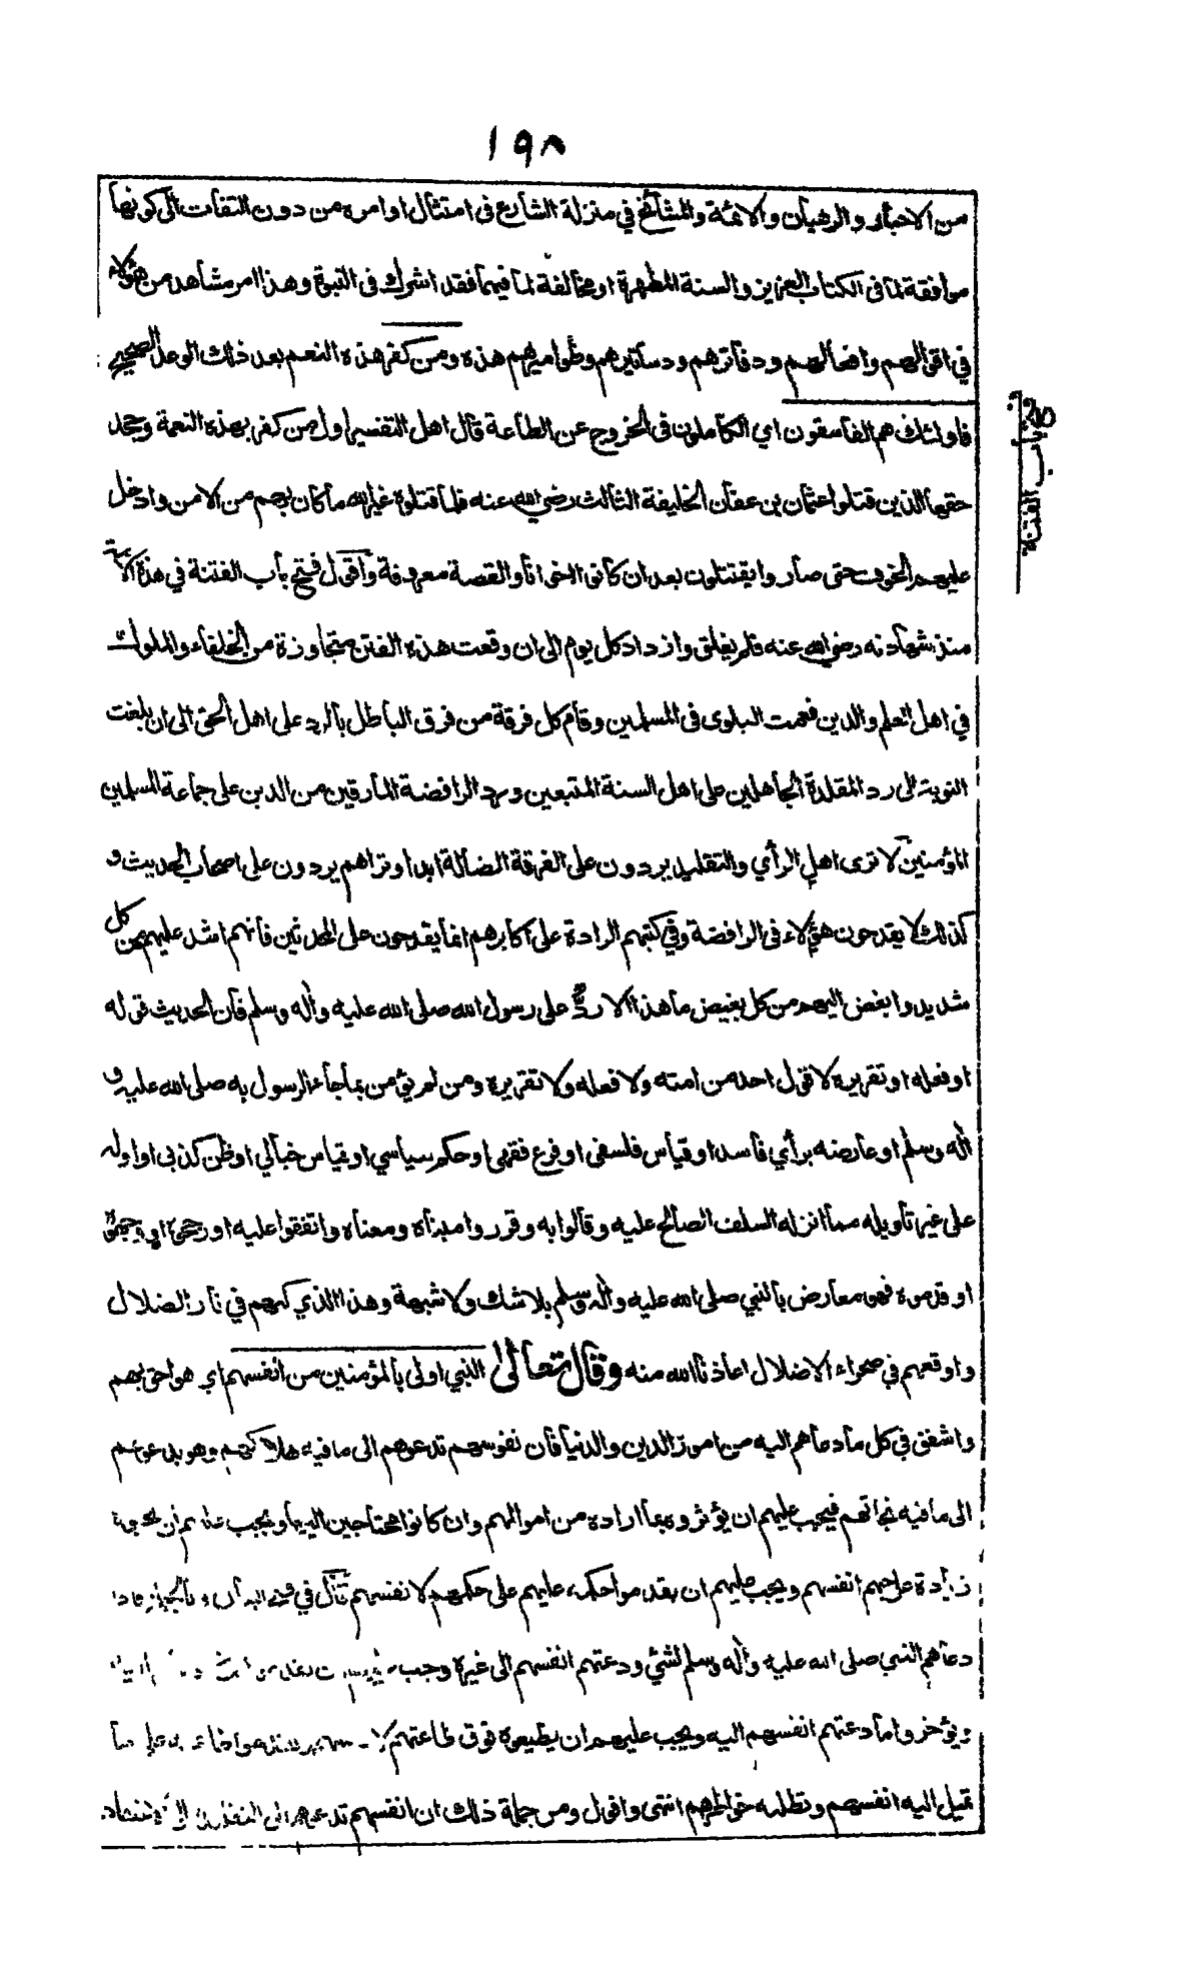 ١٩٨
من الاحبار والرهبان والائمة والمشائخ في منزلة الشارع فى امتثال اوامره من دون التفات الى كونها
موافقة لما فى الكتاب العزيز والسنة المطهرة او مخالفة لما فيهما فقد اشرك فى النبوة وهذا امر مشاهد من هؤلاء
في اقوالهم وافعالهم ودفاترهم ودساتيرهم وطواميرهم هذه ومن كفر هذه النعم بعد ذلك الوعد الصحيح
فاولئك هم الفاسقون اي الكاملون فى الخروج عن الطاعة قال اهل التفسير اول من كفر بهذه النعمة وجحد
حقها الذين قتلوا عثمان بن عفان الخليفة الثالث رضي الله عنه فلما قتلوه غير الله ما كان بهم من الامن وادخل
عليهم الخوف حتى صاروا يقتتلون بعد ان كانوا اخوانا والقصة معروفة واقول فتح باب الفتنة في هذه الامة
منذ شهادته رضي الله عنه فلم يغلق وازداد كل يوم الى ان وقعت هذه الفتن متجاوزة من الخلفاء والملوك
في اهل العلم والدين فعمت البلوى فى المسلمين وقام كل فرقة من فرق الباطل بالرد على اهل الحق الى ان بلغت
النوبة الى رد المقلدة الجاهلين على اهل السنة المتبعين ورد الرافضة المارقين من الدين على جماعة المسلمين
المؤمنين لا ترى اهل الرأي والتقليد يردون على الفرقة الضالة ابدا وتراهم يردون على اصحاب الحديث و
كذلك لا يقدحون هؤلاء فى الرافضة وفي كتبهم الرادة على اكابرهم انما يقدحون على المحدثين فانهم اشد عليهم من كل
شديد وابغض اليهم من كل بغيض ما هذا الا ردٌّ على رسول الله صلى الله عليه واله وسلم فان الحديث قوله
او فعله او تقريره لا قول احد من امته ولا فعله ولا تقريره ومن لم يؤمن بما جاء الرسول به صلى الله عليه و
اله وسلم او عارضه برأي فاسد او قياس فلسفى او فرع فقهى او حكم سياسي او قياس خيالي او ظن كذبى او اوله
على غير تأويله مما انزله السلف الصالح عليه وقالوا به وقرروا مبناه ومعناه واتفقوا عليه او رجحوه او
او قدموه فهو معارض بالنبي صلى الله عليه واله وسلم بلا شك ولا شبهة وهذا الذي كبهم في نار الضلال
واوقعهم في صحراء الاضلال اعاذنا الله منه وقال تعالى النبي اولى بالمؤمنين من انفسهم اي هو احق بهم
واشفق في كل ما دعاهم اليه من امور الدين والدنيا فان نفوسهم تدعوهم الى ما فيه هلاكهم وهو يدعوهم
الى ما فيه نجاتهم فيجب عليهم ان يؤثروه بما اراده من اموالهم وان كانوا محتاجين اليها ويجب عليهم ان يحبوه
زيادة على حبهم انفسهم ويجب عليهم ان يقدموا حكمه عليهم على حكمهم لانفسهم قال في فتح البيان وبالجملة فاذا
دعاهم النبي صلى الله عليه واله وسلم لشئ ودعتهم انفسهم الى غيره وجب
ويؤخروا ما دعتهم انفسهم اليه ويجب عليهم ان يطيعوه فوق طاعتهم ما
تميل اليه انفسهم وتطلبه خواطرهم انتهى واقول ومن جملة ذلك ان انفسهم تدعوهم الى التقليد